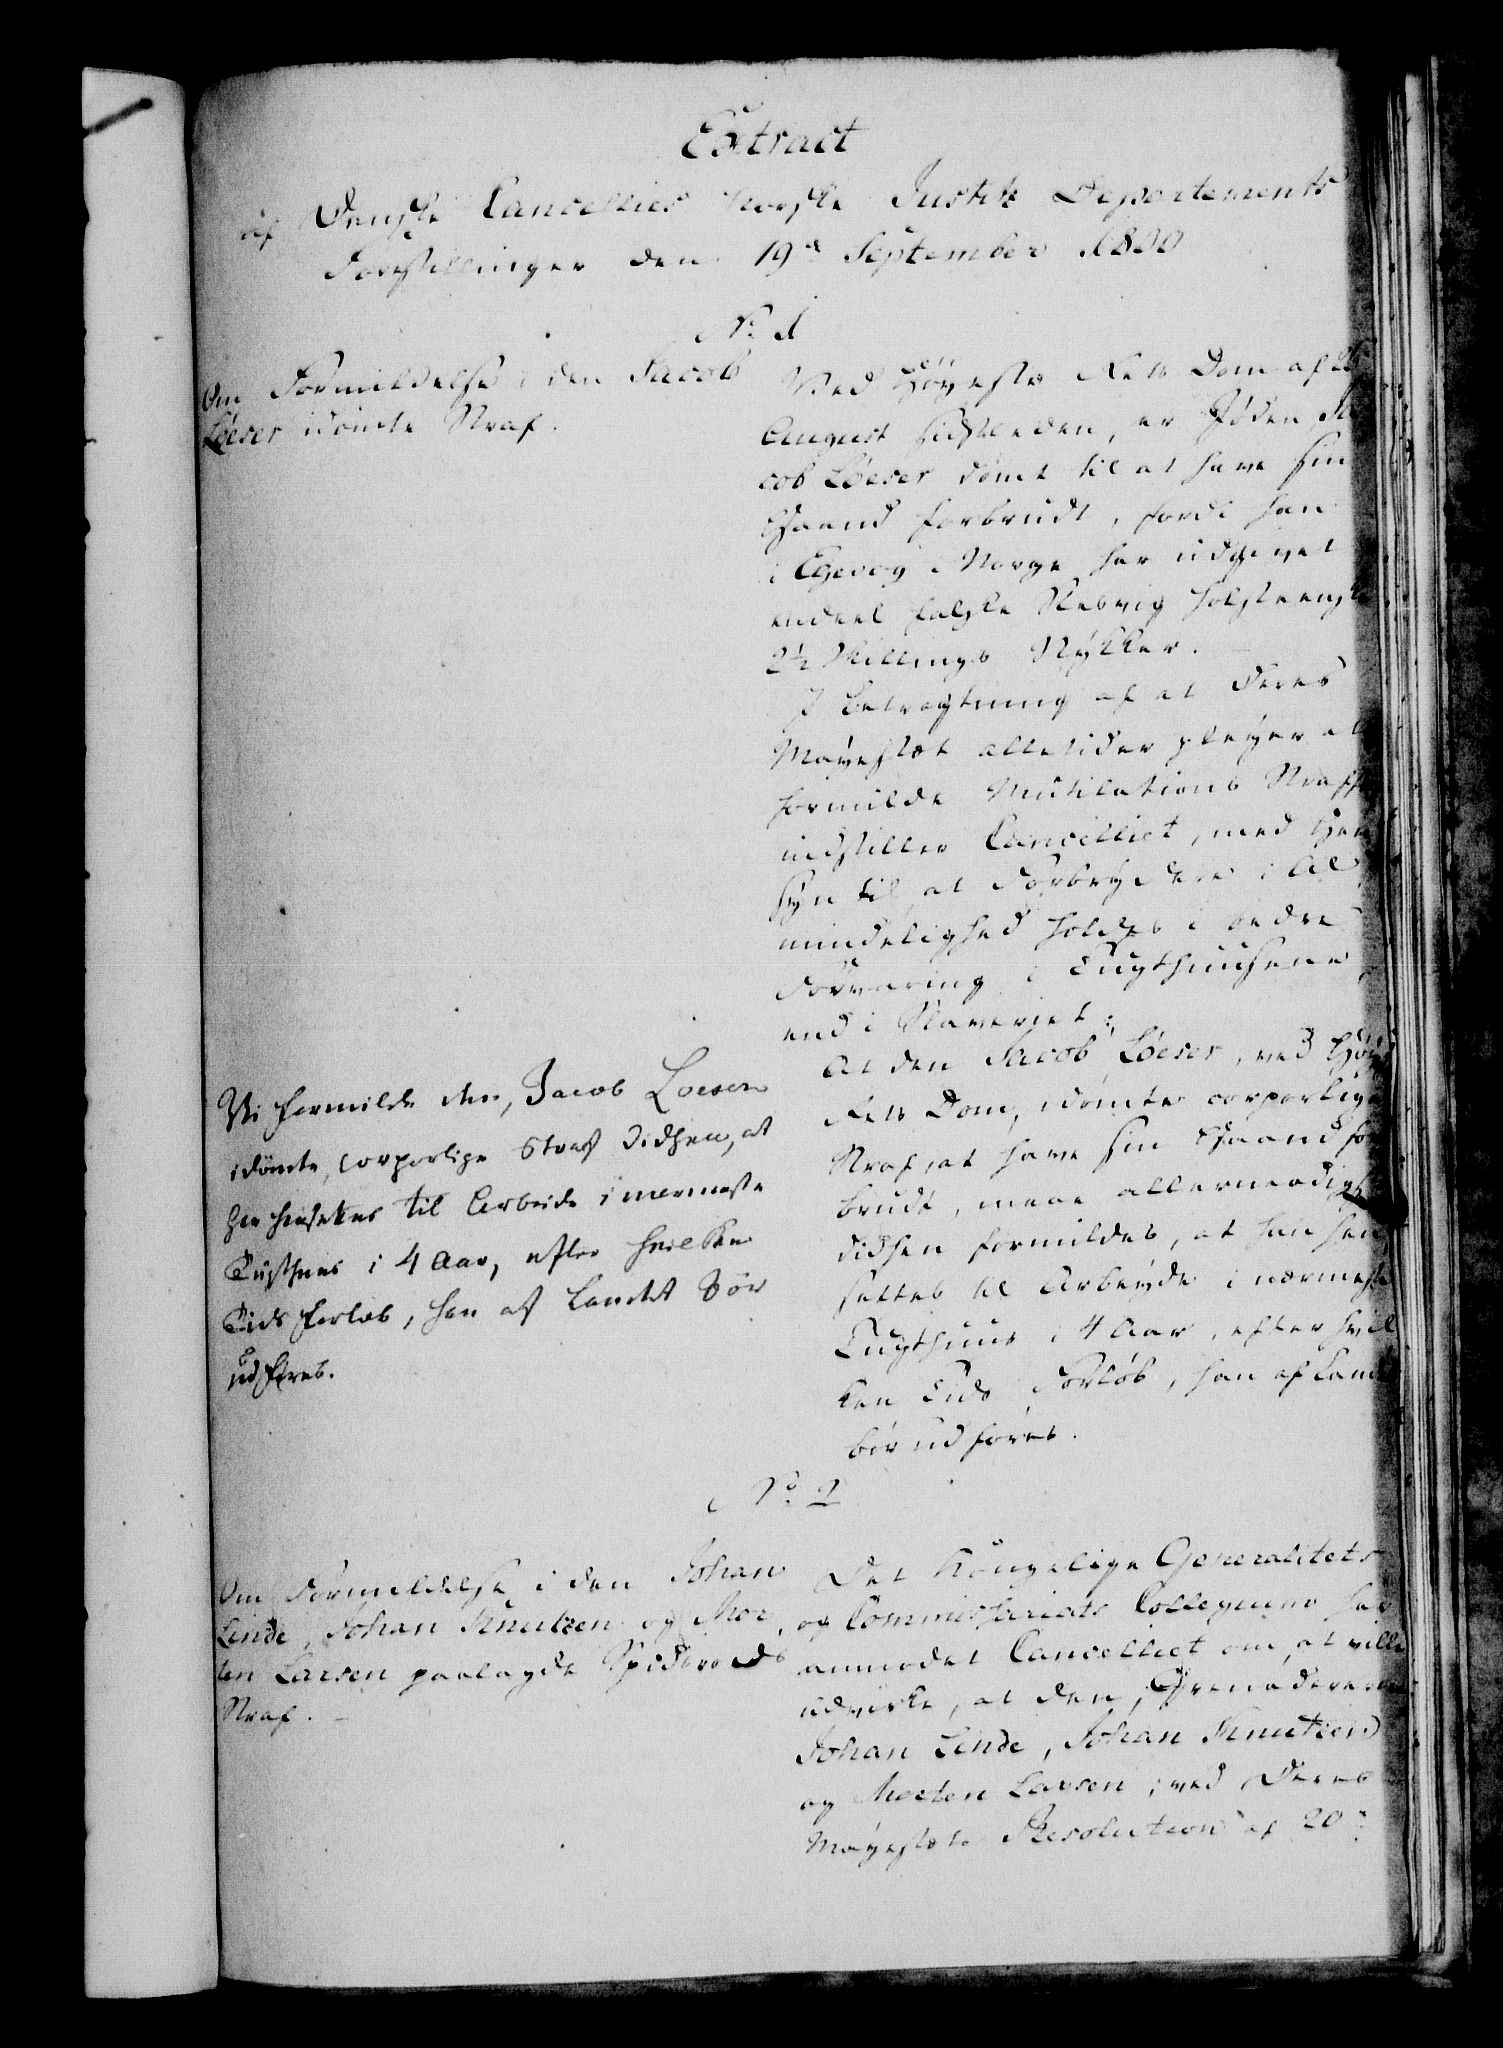 Extract
af Danske Cancellies norske Justits Departements
Forestillinger den 19de September 1800
No 1
Om Formildelse i den Jacob
Löeser idömte Straf.
Ved Höyeste Rets Dom af
August sidstleden, er Jøden Ja
cob Löeser dömt til at have sin
Haand forbrudt, fordi han
i Norge har udgivet
endeel falske Slesvig Holsteensk
2½ Skillings Stykker.
I Betragtning af at Deres
Mayestæt alletider pleyer at
formilde Mutilations Straffe
indstiller Cancelliet, med Hen
syn til, at Forbrydere i Al
mindelighed holdes i bedre
Forvaring i Tugthuusene
end i Slaveriet:
At den Jacob Löeser, ved Höye
Rets Dom, idömte corporlige
Straf, at have sin Haand for
brudt, maae allernaadigst
didhen formildes, at han hen
settes til Arbeyde i nærmeste
Tugthuus i 4 Aar, efter hvil
ken Tids Forløb, han af Landet
bör udföres.
Vi formilde den, Jacob Loesen
idömte, corporlige Straf didhen, at
han hensættes til Arbeide i nærmeste
Tugthuus i 4 Aar, efter hvilken
Tids Forløb, han af Landet bør
udføres.
No 2
Om Formildelse i den Johan
Linde, Johan Knutzen og Mor
ten Larsen paalagde Spidsrods
Straf.
Det Kongelige Generalitets
og Commissariats Collegium har
anmodet Cancelliet om, at ville
udvirke, at den, Grenadererne
Johan Linde, Johan Knutzen
og Morten Larsen, ved Deres
Mayestæts Resolution af 20de